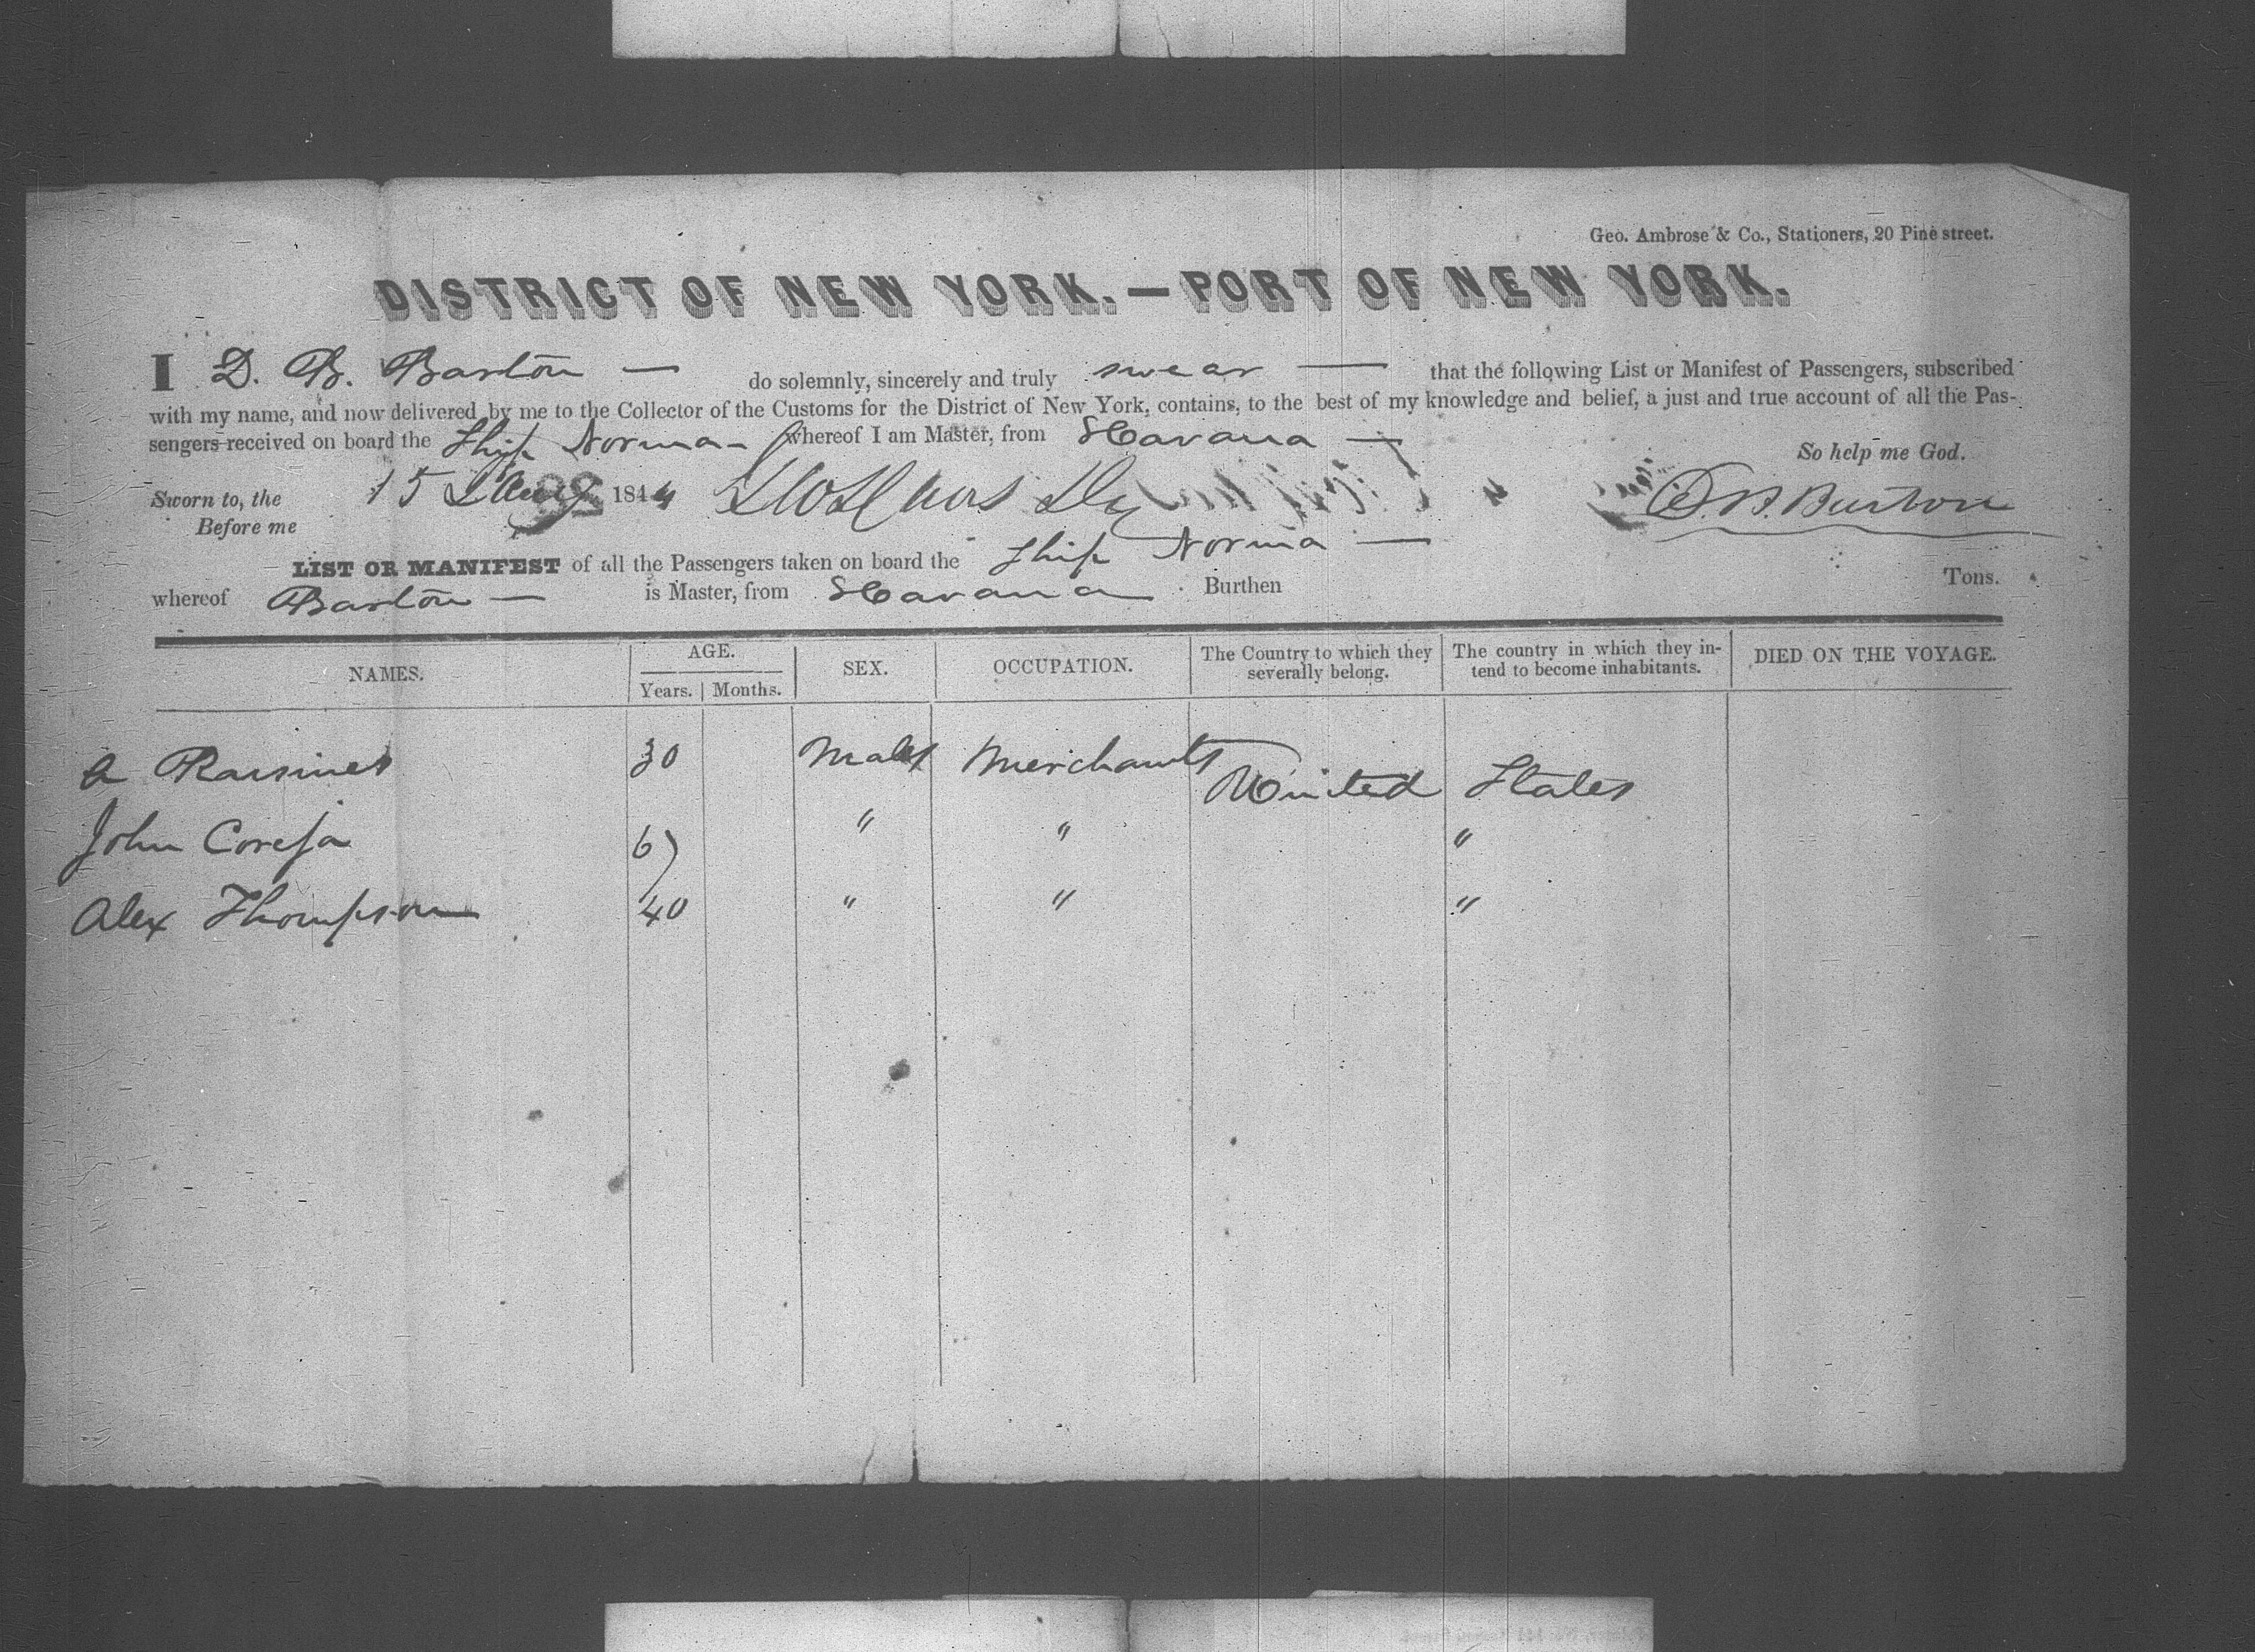 Geo. Ambrose & Co., Stationers, 20 Pine street.
DISTRICT OF NEW YORK.—PORT OF NEW YORK.
I D. B. Barton — do solemnly, sincerely and truly swear — that the following List or Manifest of Passengers, subscribed
with my name, and now delivered by me to the Collector of the Customs for the District of New York, contains, to the best of my knowledge and belief, a just and true account of all the Pas-
sengers received on board the Ship Norma — whereof I am Master, from Havana —
So help me God.
Sworn to, the 15 Aug 1844
D. B. Barton
Before me
LIST OR MANIFEST of all the Passengers taken on board the Ship Norma —
whereof Barton — is Master, from Havana Burthen Tons.
NAMES. AGE. Years. Months. SEX. OCCUPATION. The Country to which they severally belong. The country in which they in-tend to become inhabitants. DIED ON THE VOYAGE.
30 Male Merchants United States
John 67 " " "
Alex Thompson 40 " " "